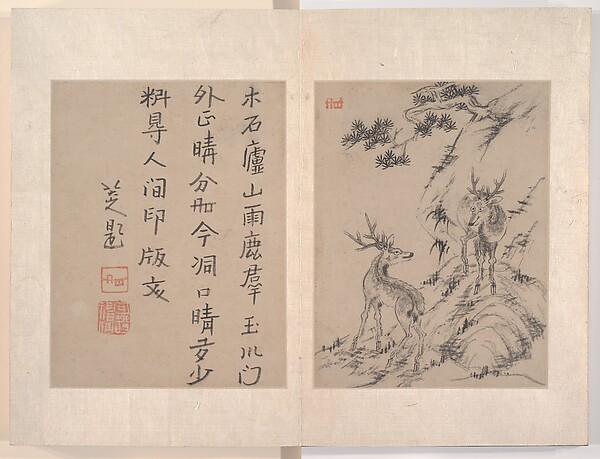 木石廬山雨鹿群玉川门
外正晴分冊今洞口晴多少
料尋人间印版文
八大題